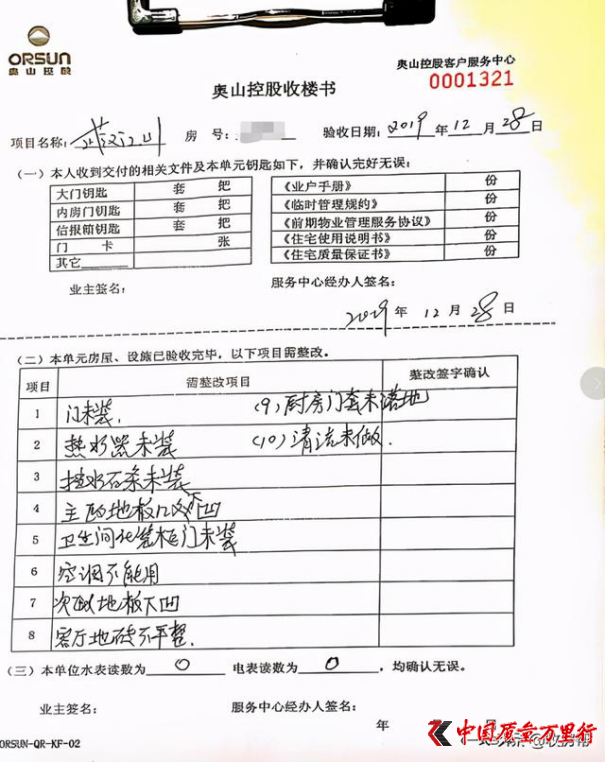 ORSUN
奥山控股
奥山控股客户服务中心
0001321
奥山控股收楼书
项目名称： 房 号： 验收日期：2019年12月28日
（一）本人收到交付的相关文件及本单元钥匙如下，并确认完好无误：
大门钥匙 套 把 《业户手册》 份
内房门钥匙 套 把 《临时管理规约》 份
信报箱钥匙 套 把 《前期物业管理服务协议》 份
门 卡 张 《住宅使用说明书》 份
其它 《住宅质量保证书》 份
业主签名： 服务中心经办人签名：
2019年12月28日
（二）本单元房屋、设施已验收完毕，以下项目需整改。
项目 需整改项目 整改签字确认
1 门未装. （9）厨房门套未落地
2 热水器未装 （10）清洁未做.
3 挡水石条未装
4 主卧地板 下凹
5 卫生间 柜门未装
6 空调不能用
7 次卧地板下凹
8 客厅地砖不平整.
（三）本单位水表读数为 0 电表读数为 0 ，均确认无误。
业主签名： 服务中心经办人签名：
年
ORSUN-QR-KF-02
中国质量万里行